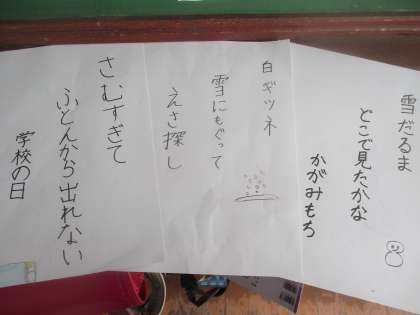 雪だるま
どこで見たかな
かがみもち
白ギツネ
雪にもぐって
えさ探し
さむすぎて
ふとんから出れない
学校の日